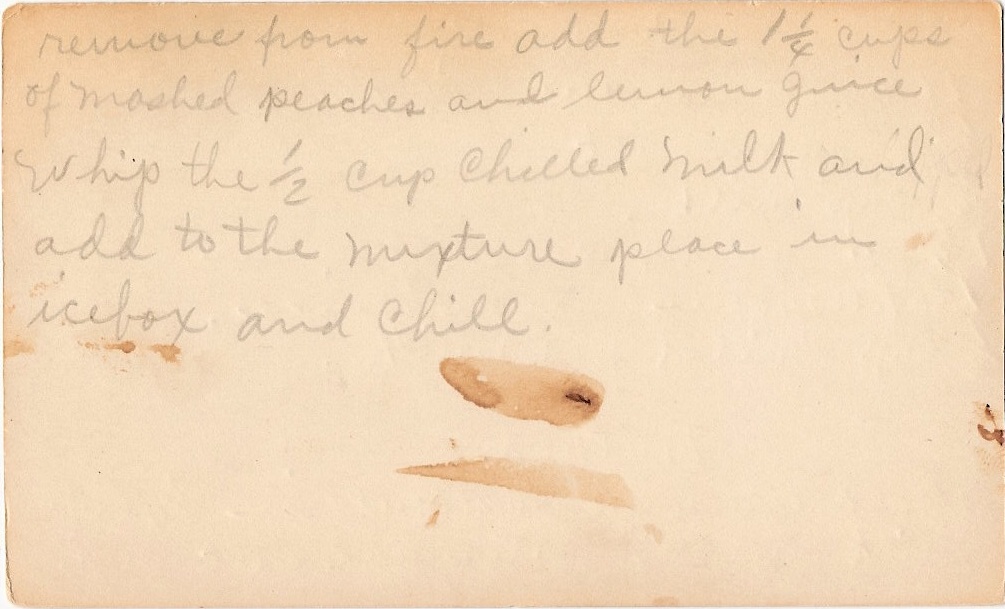 remove from fire add the 1 1/4 cups
of mashed peaches and lemon juice
Whip the 1/2 cup chilled milk and
add to the mixture place in
icebox and chill.